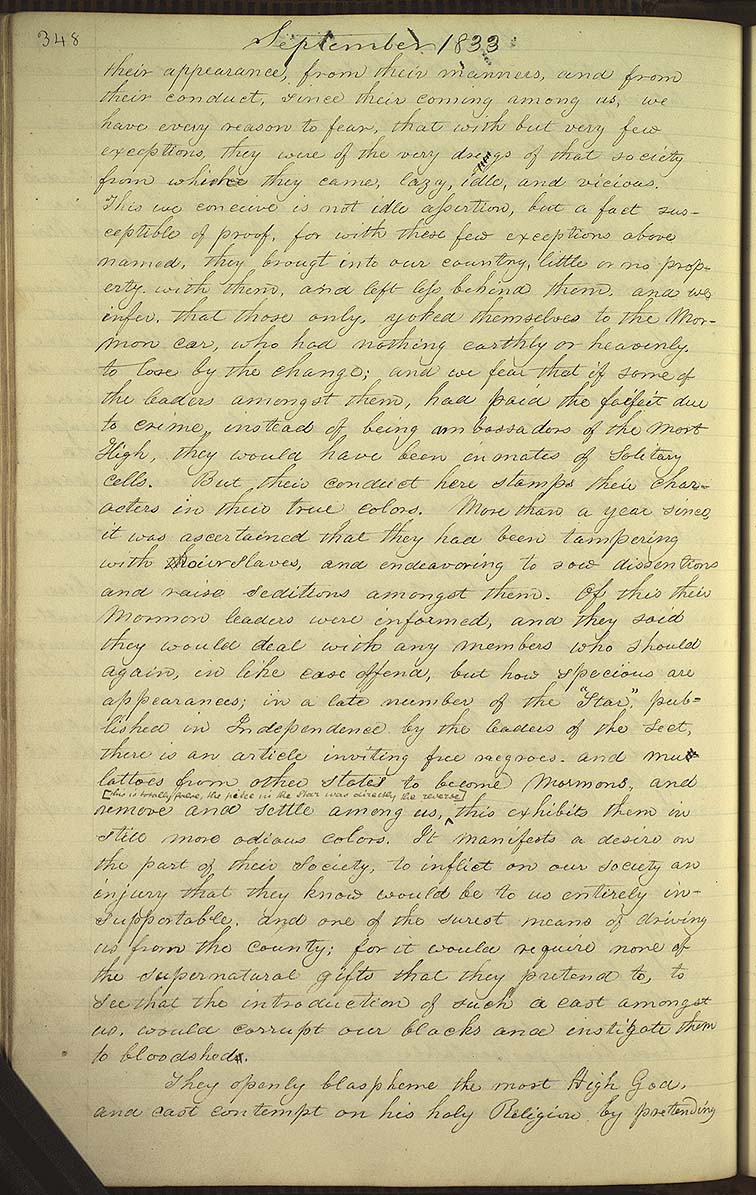 348
September 1833
their appearance, from their manners, and from
their conduct, since their coming among us, we
have every reason to fear, that with but very few
exceptions, they were of the very dregs of that society
from which they came, lazy, idle, and vicious.
This we conceive is not idle assertion, but a fact sus-
ceptible of proof, for with these few exceptions above
named, they brougt into our country, little or no prop-
erty. with them, and left less behind them. and we
infer, that those only, yoked themselves to the Mor-
mon car, who had nothing earthly or heavenly.
to lose by the change; and we fear that if some of
the leaders amongst them, had paid the forfeit due
to crime, instead of being ambassadors of the Most
High, they would have been inmates of Solitary
cells. But, their conduct here stamps their char-
acters in their true colors. More than a year since,
it was ascertained that they had been tampering
with our slaves, and endeavoring to sow dissentions
and raise seditions amongst them. Of this their
Mormon leaders were informed, and they said
they would deal with any members who should
again, in like case offend, but how specious are
appearances; in a late number of the "Star", pub-
lished in Independence by the leaders of the Sect,
there is an article inviting free negroes. and mu
lattoes from other States to become Mormons, and
[this is totally false, the piece in the Star was directly the reverse]
remove and settle among us, ^ this exhibits them in
still more odious colors. It manifests a desire on
the part of their Society, to inflict on our society an
injury that they know would be to us entirely in-
supportable. and one of the surest means of driving
us from the county; for it would require none of
the supernatural gifts that they pretend to, to
see that the introduction of such a cast amongst
us. would corrupt our blacks and instigate them
to bloodshed.
They openly blaspheme the most High God,
and cast contempt on his holy Religion by pretending